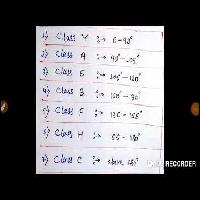 1) Class Y :→ 0-90°
2) Class A :→ 90°-105°
3) Class E :→ 105°-120°
4) Class B :→ 120°-130°
5) Class F :→ 130-155°
6) Class H :→ 155-180°
RECORDER
7) Class C :→ above 180°